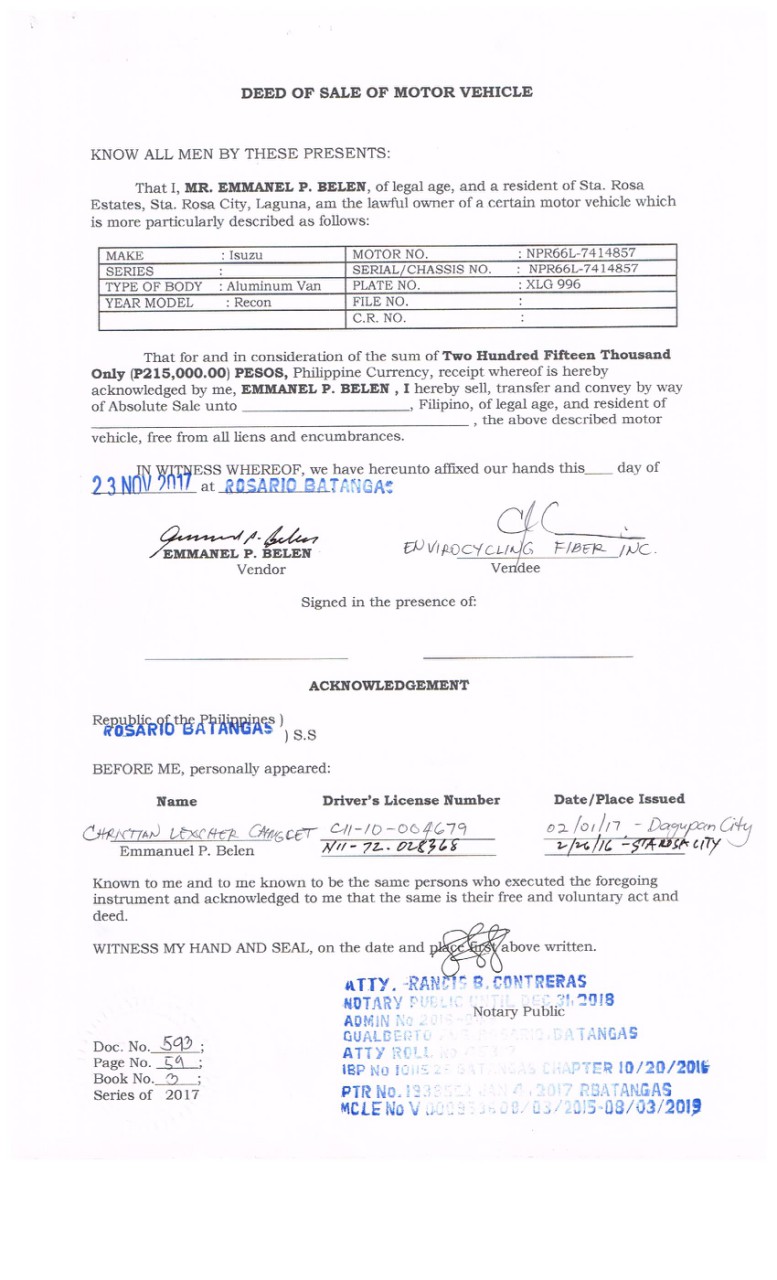 DEED OF SALE OF MOTOR VEHICLE
KNOW ALL MEN BY THESE PRESENTS:
That I, MR. EMMANEL P. BELEN, of legal age, and a resident of Sta. Rosa
Estates, Sta. Rosa City, Laguna, am the lawful owner of a certain motor vehicle which
is more particularly described as follows:
MAKE : Isuzu MOTOR NO. : NPR66L-7414857
SERIES : SERIAL/CHASSIS NO. : NPR66L-7414857
TYPE OF BODY : Aluminum Van PLATE NO. : XLG 996
YEAR MODEL : Recon FILE NO. :
C.R. NO. :
That for and in consideration of the sum of Two Hundred Fifteen Thousand
Only (P215,000.00) PESOS, Philippine Currency, receipt whereof is hereby
acknowledged by me, EMMANEL P. BELEN , I hereby sell, transfer and convey by way
of Absolute Sale unto ____________________, Filipino, of legal age, and resident of
____________________ , the above described motor
vehicle, free from all liens and encumbrances.
IN WITNESS WHEREOF, we have hereunto affixed our hands this____ day of
23 NOV 2017 at ROSARIO BATANGAS
EMMANEL P. BELEN ENVIROCYCLING FIBER INC.
Vendor Vendee
Signed in the presence of:
ACKNOWLEDGEMENT
Republic of the Philippines )
ROSARIO BATANGAS ) S.S
BEFORE ME, personally appeared:
Name Driver's License Number Date/Place Issued
CHRISTIAN LEXCHER C11-10-004679 02/01/17 - Dagupan City
Emmanuel P. Belen N11-72-028368 2/26/16 - STA ROSA CITY
Known to me and to me known to be the same persons who executed the foregoing
instrument and acknowledged to me that the same is their free and voluntary act and
deed.
WITNESS MY HAND AND SEAL, on the date and place first above written.
ATTY. RANCIS B. CONTRERAS
NOTARY PUBLIC UNTIL DEC 31, 2018
Notary Public
ADMIN No
GUALBERTO BATANGAS
ATTY ROLL
IBP No BATANGAS CHAPTER 10/20/2016
PTR No. JAN 4, 2017 RBATANGAS
MCLE No V 08/03/2015-08/03/2019
Doc. No. 593 ;
Page No. 59 ;
Book No. 3 ;
Series of 2017